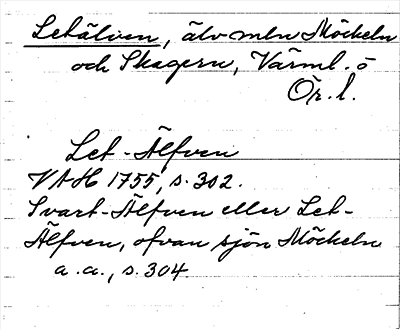 Letälven, älv mln Möckeln
och Skagern, Värml. o
Ör. l.
Let-Älfven
VAH 1755, s. 302.
Svart-Älfven eller Let-
Älfven, ofvan sjön Möckeln
a.a., s. 304.